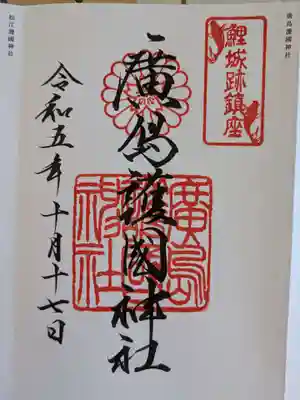 廣島護國神社
鯉城跡鎮座
廣島護國神社
令和五年十月十七日
松江護國神社